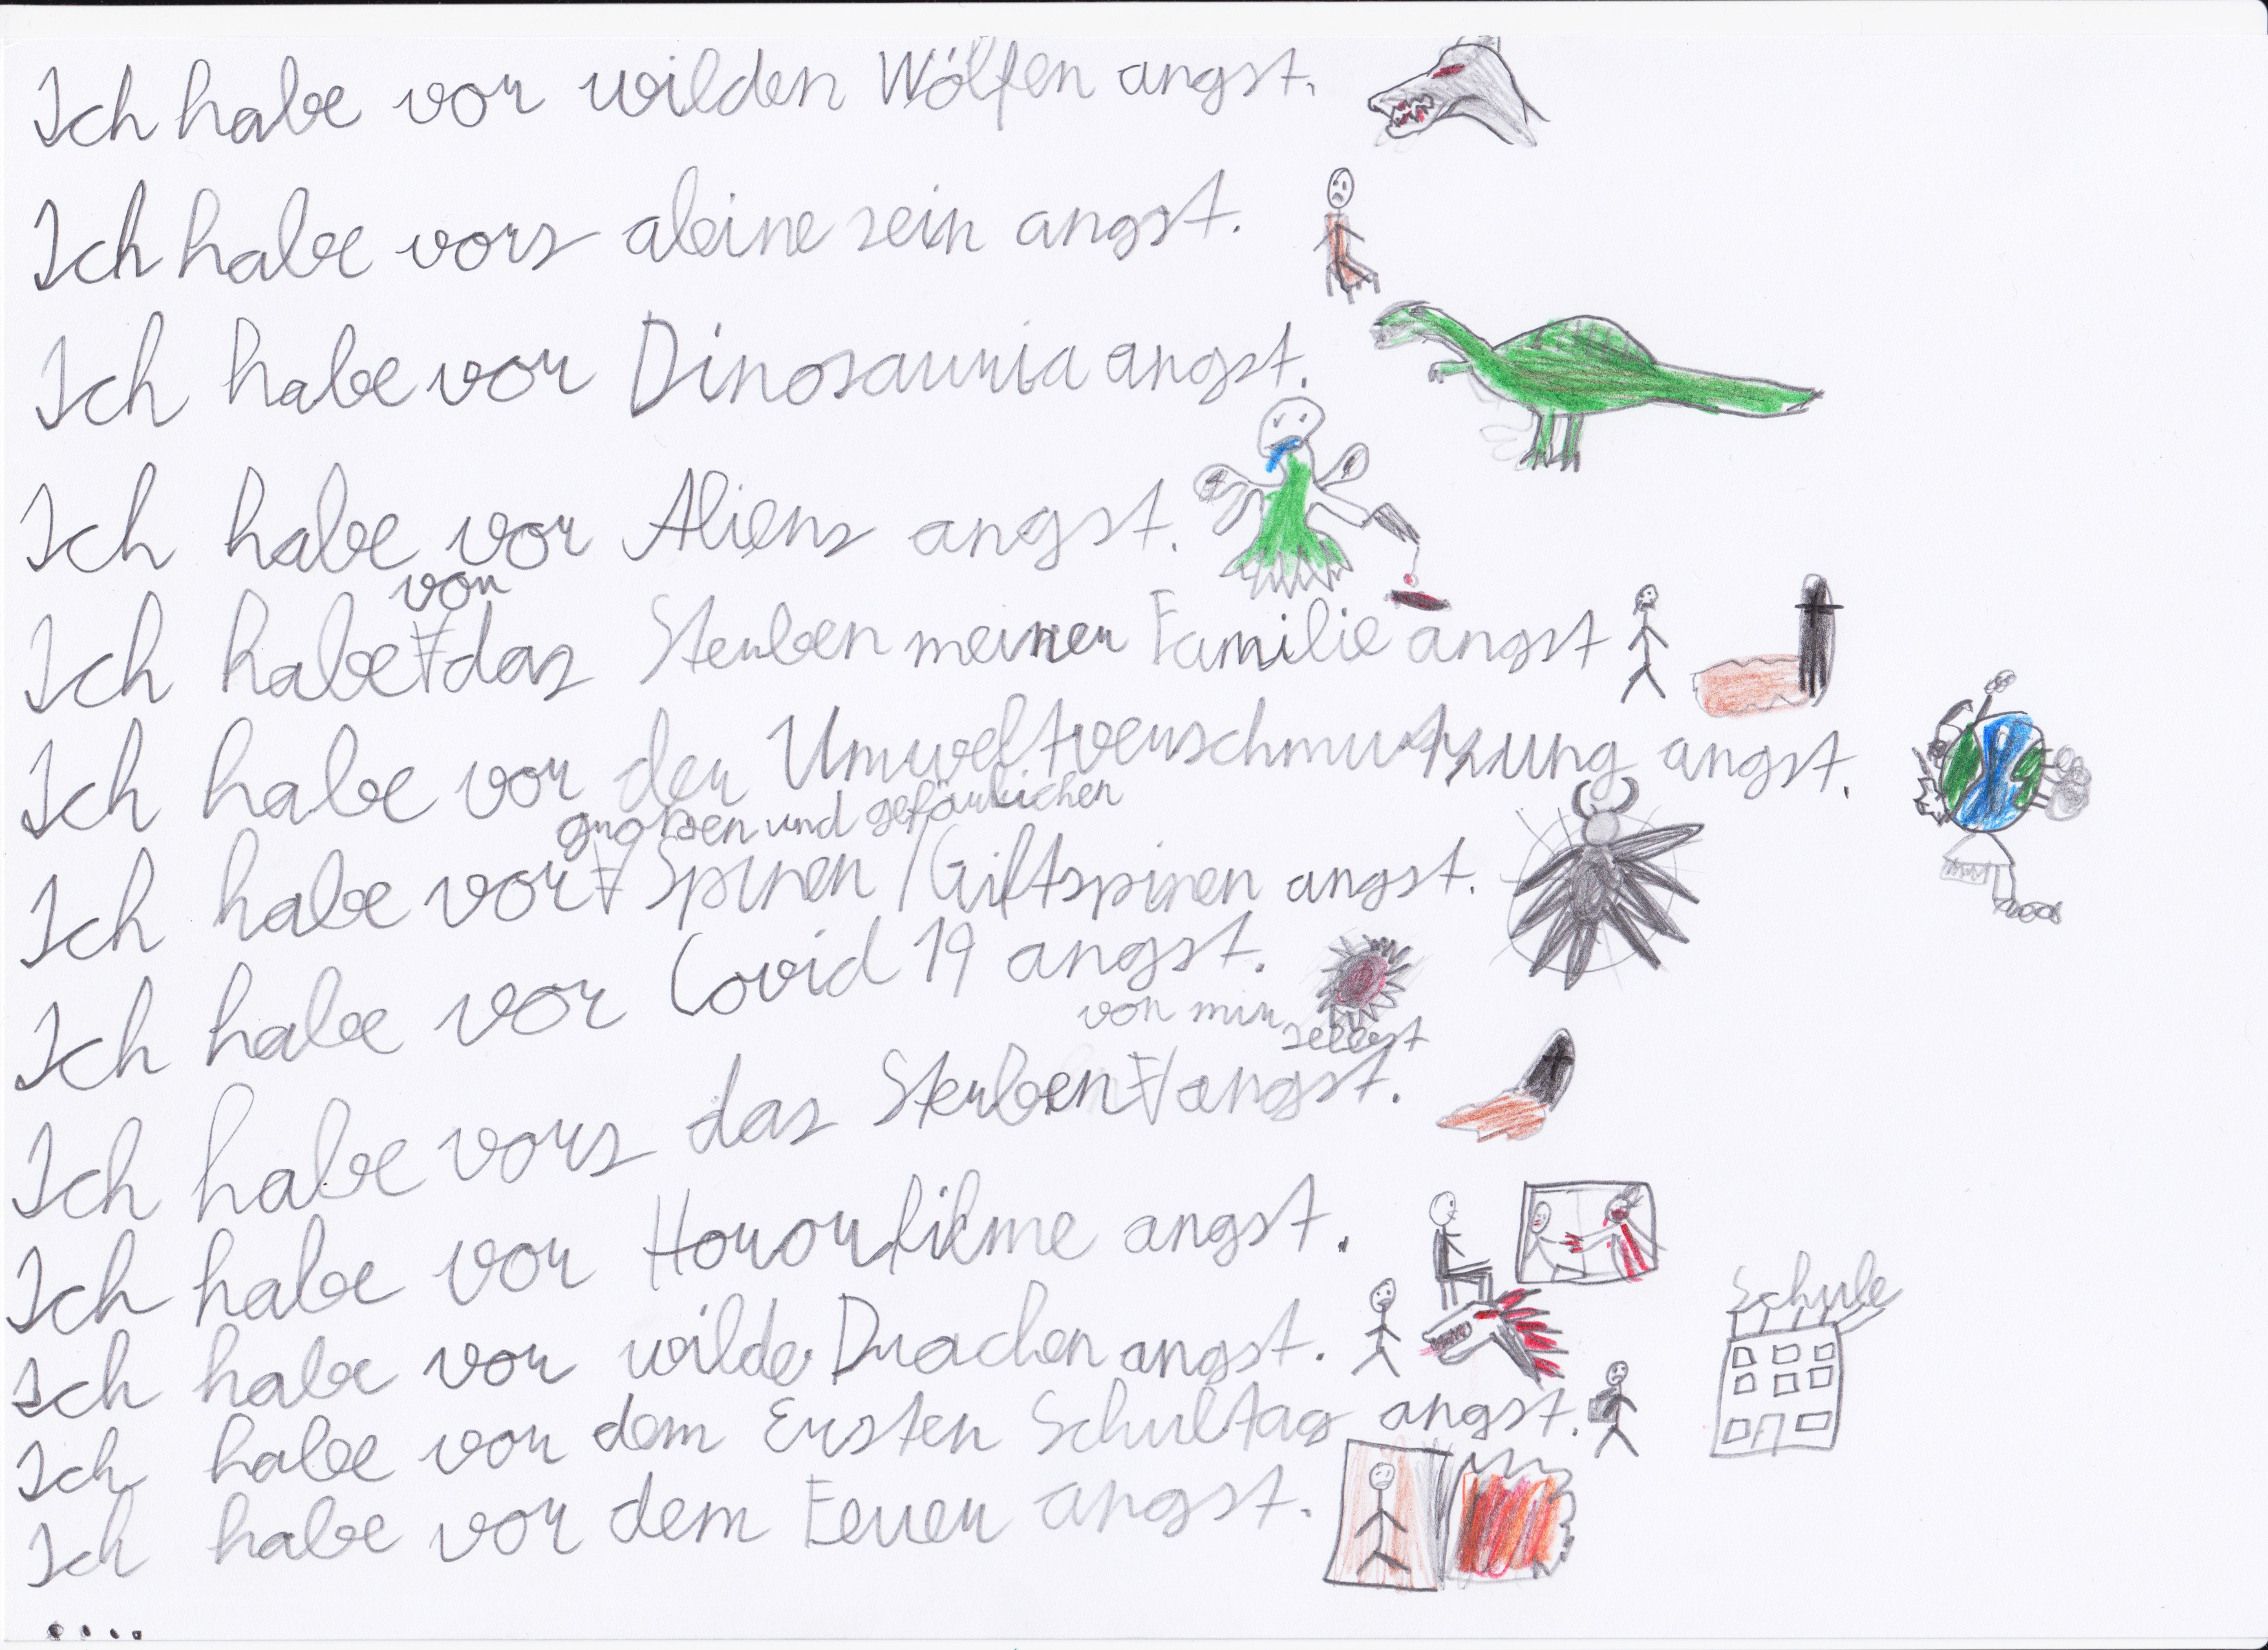 Ich habe vor wilden Wölfen angst.
Ich habe vors aleine sein angst.
Ich habe vor Dinosauria angst.
Ich habe vor Aliens angst.
vor
Ich habe das Sterben meiner Familie angst
Ich habe vor der Umweltverschmutzung angst.
großen und gefärlichen
Ich habe vor Spinen / Giftspinen angst.
Ich habe vor Covid 19 angst.
von mir selbst
Ich habe vors das Sterben angst.
Ich habe vor Hororfilme angst.
Ich habe vor wilde Drachen angst.
Schule
Ich habe vor dem Ersten Schultag angst.
Ich habe vor dem Feuer angst.
....